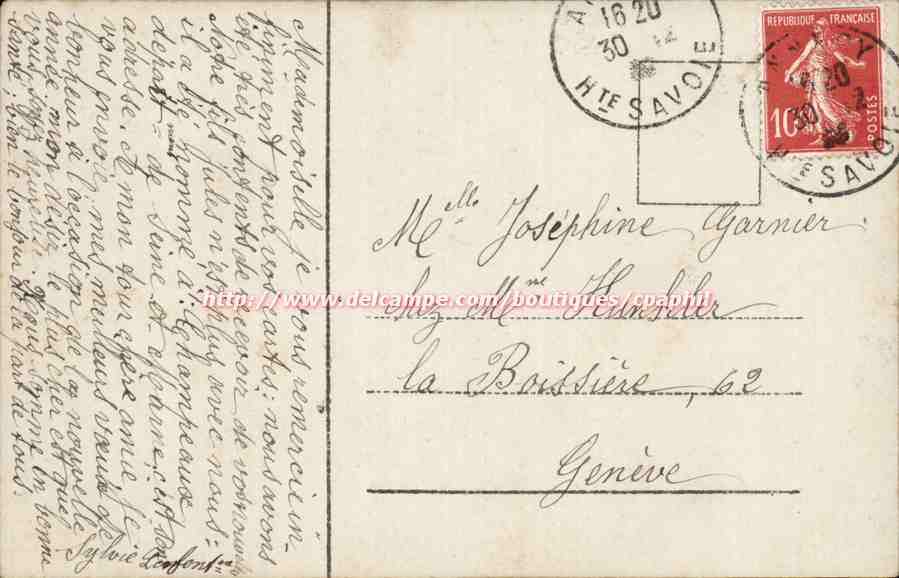 Mademoiselle je vous remercie in-
finiment pour vos cartes; nous avons
été très contents de recevoir de vos nouvelles
Notre fils Jules n'est plus avec nous:
il a été nommé à Champeaux
départ = de Seine et Marne; c'est son
adresse. A mon tour chère amie je
vous envoie mes meilleurs vœux de
bonheur à l'occasion de la nouvelle
année, mon désir le plus cher est que
vous soyez heureuse. Nous sommes en bonne
santé, bien le bonjour de la part de tous.
Sylvie
A
16 20
30
HTE SAVOIE
REPUBLIQUE FRANÇAISE
10
POSTES
ANNECY
16 20
30
HTE SAVOIE
Mlle Joséphine Garnier
chez Mme Hunseler
la Boissière, 62
Genève
http://www.delcampe.com/boutiques/cpaphil